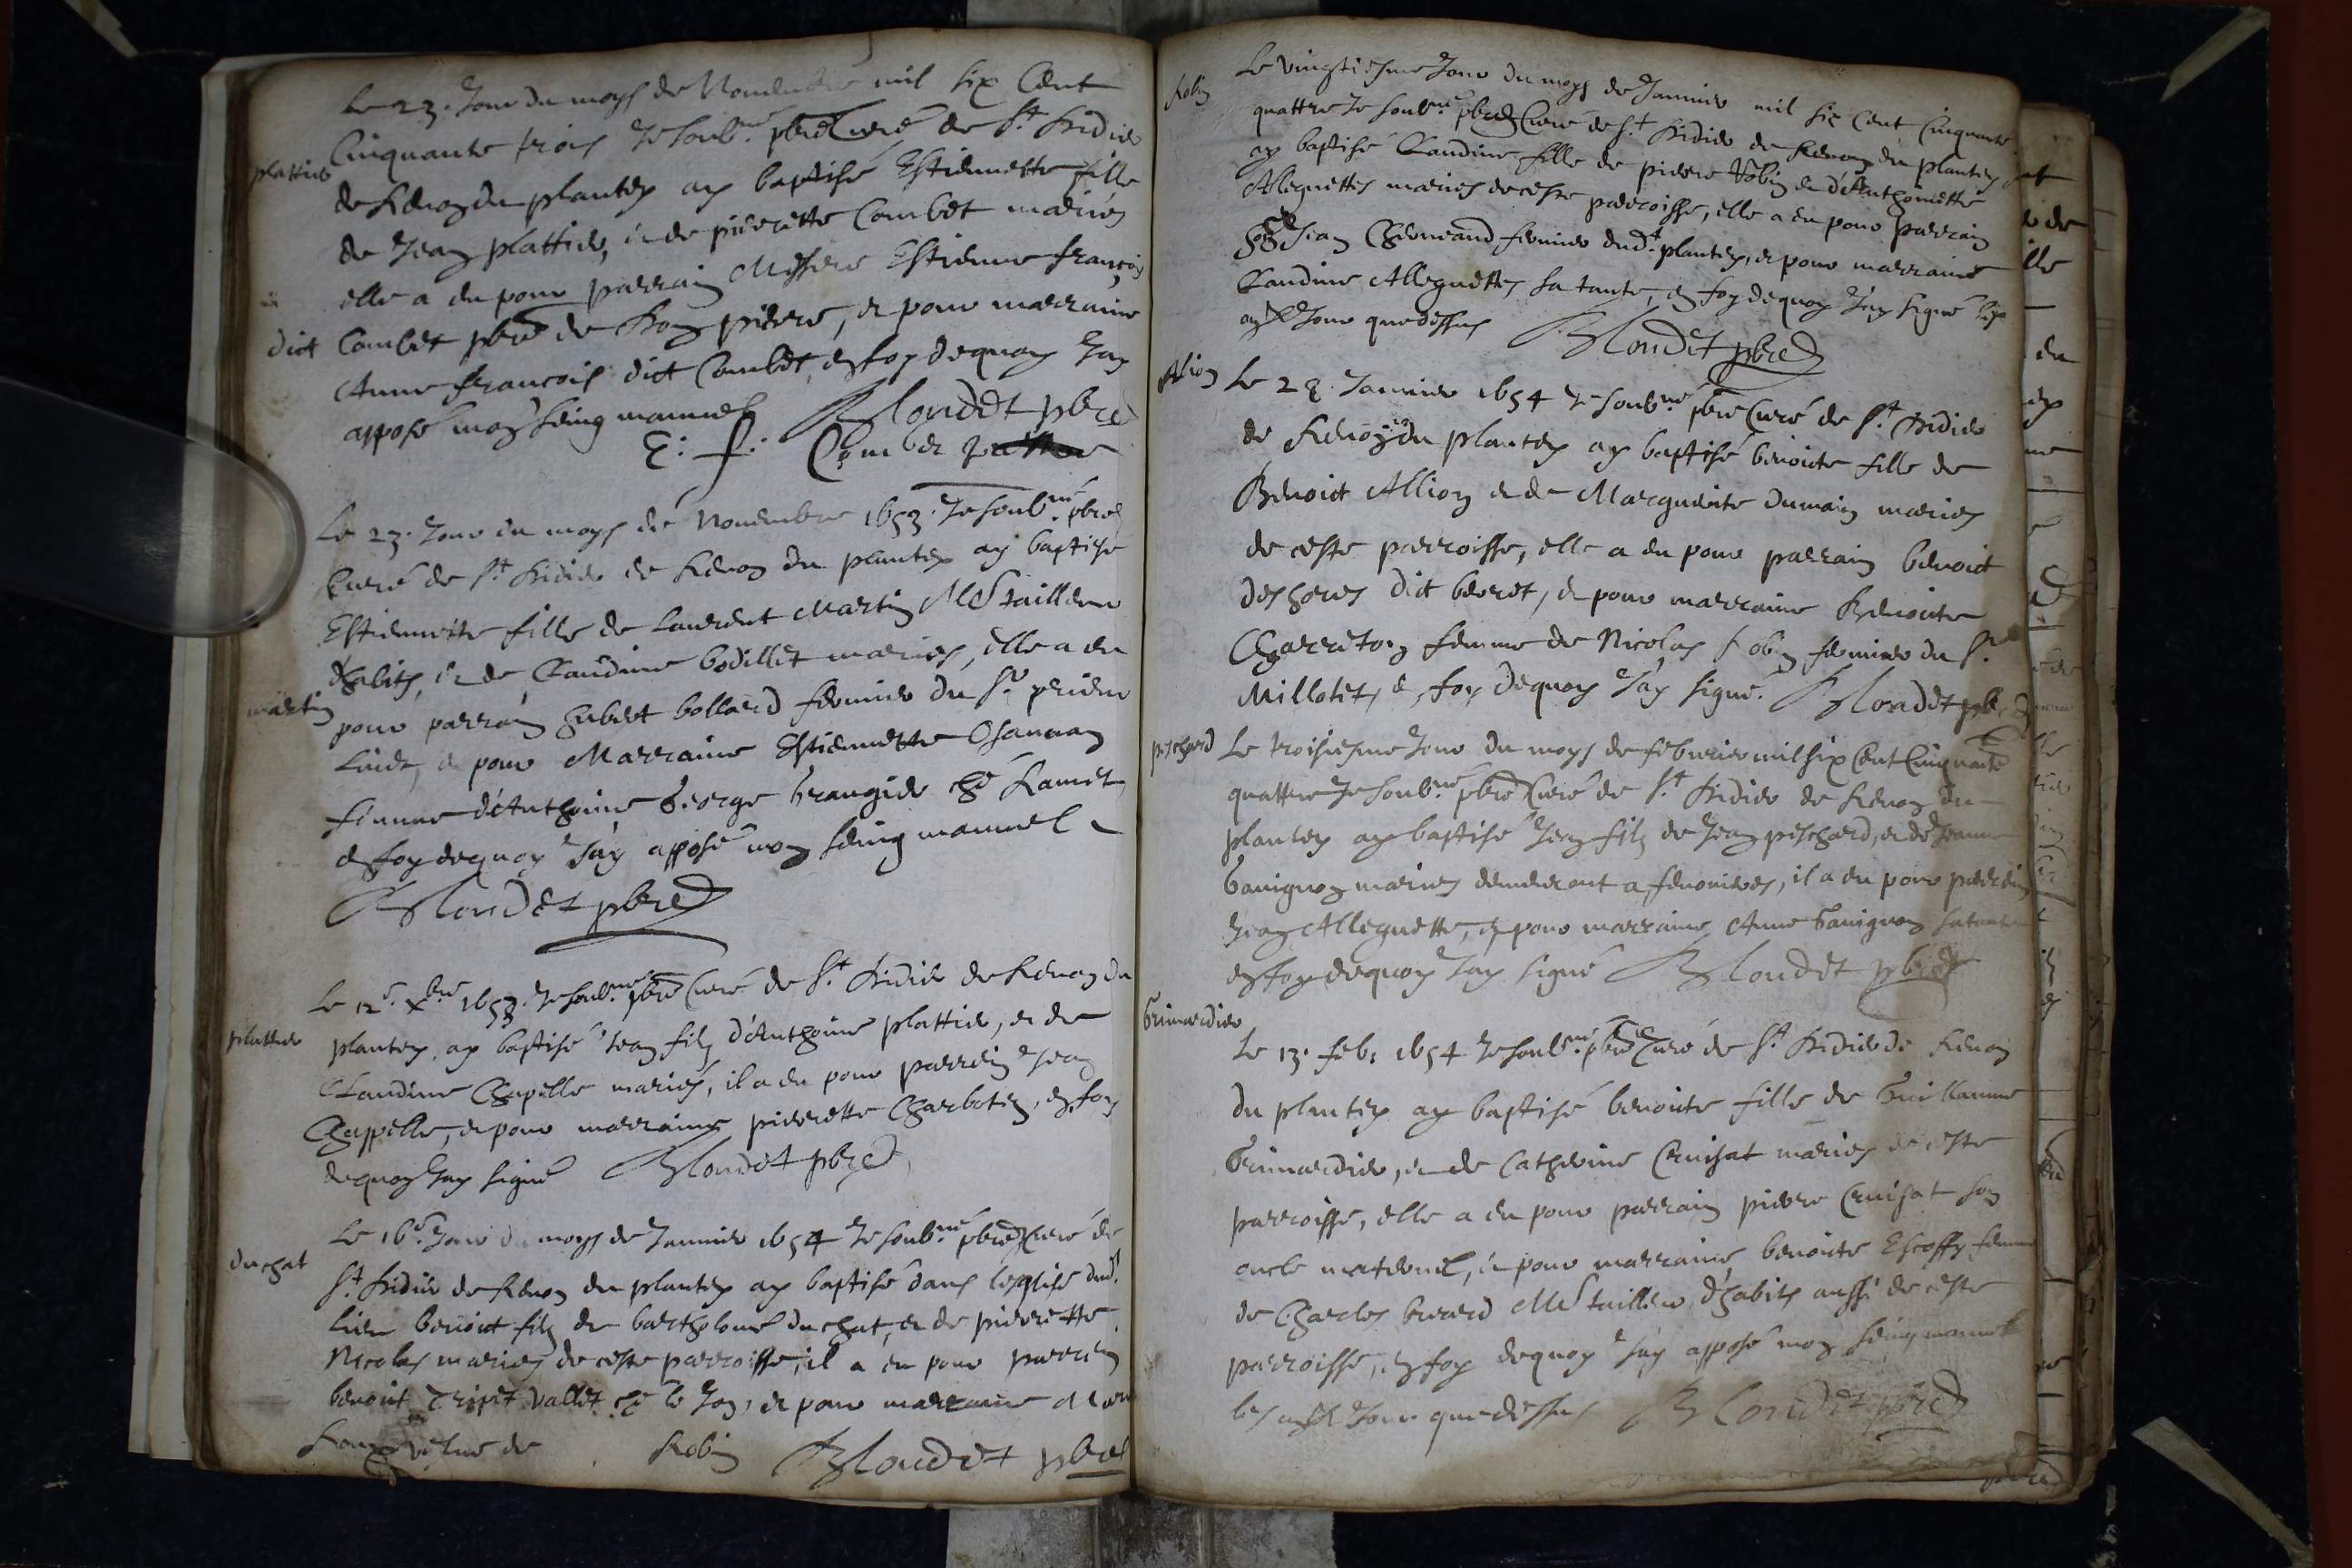 Le 23. Jour du moys de Nouembre mil six Cent
plattier Cinquante trois Je soubné. pbre Curé de St. Didier
de Renon du plantey ay baptisé Estiennette fille
de Jean plattier, et de pierrette Combet mariés
elle a eu pour parrain Messire Estienne françois
dict Combet pbre de Bon pierre, et pour marraine
Anne francois dict Combet, en foy dequoy Jay
apposé mon seing manuel Blondet pbre
E: f: Combet
Le 23. Jour du moys de Nouembre 1653. Je soubné. pbre
Curé de St. Didier de Renon du plantey ay baptisé
Estiennette fille de Laurent Martin Me tailleur
dhabits, et de Claudine bodillet mariés, elle a eu
martin pour parrain hubert bollard fermier du Sr. prieur
et pour Marraine Estiennette Osannan
femme d'Anthoine George Grangier ché Ramet,
en foy dequoy J'ay apposé mon seing manuel
Blondet pbre
Le 12e. Xbre 1653. Je soubné. pbre Curé de St. Didier de Renon du
plattier plantey ay baptisé Jean filz d'Anthoine plattier, et de
Claudine Chapelle mariés, il a eu pour parrein Jean
Chappelle, et pour marraine pierrette Charboten, en foy
dequoy Jay signé Blondet pbre
Le 16e. Jour du moys de Januier 1654 Je soubné. pbre Curé de
duchat St. Didier de Renon du plantey ay baptisé dans lesglise dudt.
lieu benoict filz de bartholomé duchat, et de pierrette
Nicolas mariés de ceste parroisse, il a eu pour parrein
benoict Tripet Vallet ché le Jon, et pour marraine
Roux vefue de Robin Blondet pbre
Robin Le vingtiesme Jour du moys de Januier mil six Cent Cinquante
quattre Je soubné. pbre Curé de St. Didier de Renon du plantey
ay baptisé Claudine fille de pierre Robin et d'Anthoinette
Aleguettes mariés de ceste parroisse, elle a eu pour parrain
Jean Cheuriand fermier dudt. plantey, et pour marraine
Claudine Alleguettes sa tante, en foy dequoy J'ay signé les
an et Jour que dessus Blondet pbre
Alion Le 28. Januier 1654 Je soubné. pbre Curé de St. Didier
de Renon du plantey ay baptisé benoicte fille de
Benoict Allion et de Marguerite Dumain mariés
de ceste parroisse, elle a eu pour parrain benoict
deshores dict beoret, et pour marraine Benoicte
Charreton femme de Nicolas Robin fermier du Sr.
Millotet, en foy dequoy J'ay signé. Blondet pbre
peschard Le troisiesme Jour du moys de feburier mil six Cent Cinquante
quattre Je soubné. pbre Curé de St. Didier de Renon du
plantey ay baptisé Jean filz de Jean peschard, et de Jeanne
Gauignon mariés demeurant a fenonieres, il a eu pour parrein
Jean Alleguette, et pour marraine Anne Gauignon sa tante
en foy dequoy J'ay signé Blondet pbre
Grimardier Le 13. feb. 1654 Je soubné. pbre Curé de St. Didier de Renon
du plantey ay baptisé benoicte fille de Guillaume
Grimardier, et de Catherine Cruisat mariés de ceste
parroisse, elle a eu pour parrain pierre Cruisat son
oncle maternel, et pour marraine benoicte Escoffy femme
de Charles brerd Me tailleur d'habits aussi de ceste
parroisse, en foy dequoy J'ay apposé mon seing manuel
les an et Jour que dessus Blondet pbre